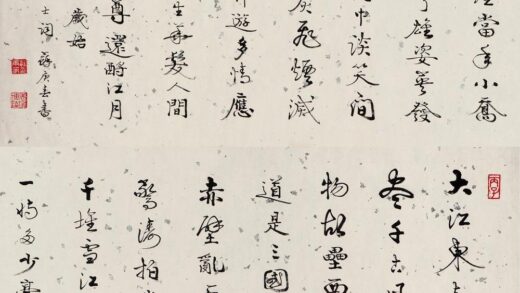 當年小喬
雄姿英發
巾談笑間
飛煙滅
遊多情應
生華髮人間
尊還酹江月
歲始
士詞 庚春書
丙子
大江東
盡千古
物故壘西
道是三國
赤壁亂
驚濤拍
千堆雪江
一時多少豪